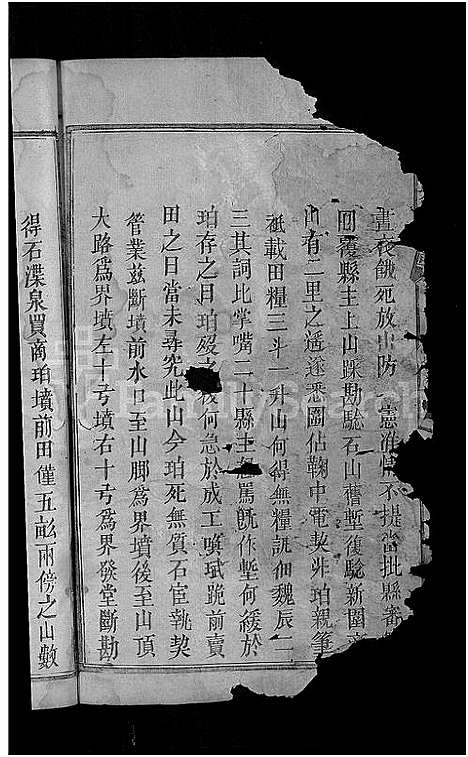 晝夜餓死放出防 憲准 不提當批縣審
回覆縣主上山踩勘驗石山舊塹復驗新圍
出有二里之遥遂悉圖佔鞠中電契非珀親筆
祗載田糧三斗一升山何得無糧訊佃魏辰二
三其詞比掌嘴二十縣主 罵既作塹何緩於
珀存之日珀歿之後何急於成工嗔斌跪前賣
田之日當未尋究此山今珀死無質石宦執契
管業茲斷墳前水口至山脚爲界墳後至山頂
大路爲界墳左十弓墳右十弓爲界發堂斷勘
得石渫泉買商珀墳前田僅五畝兩傍之山數
FamilySearch